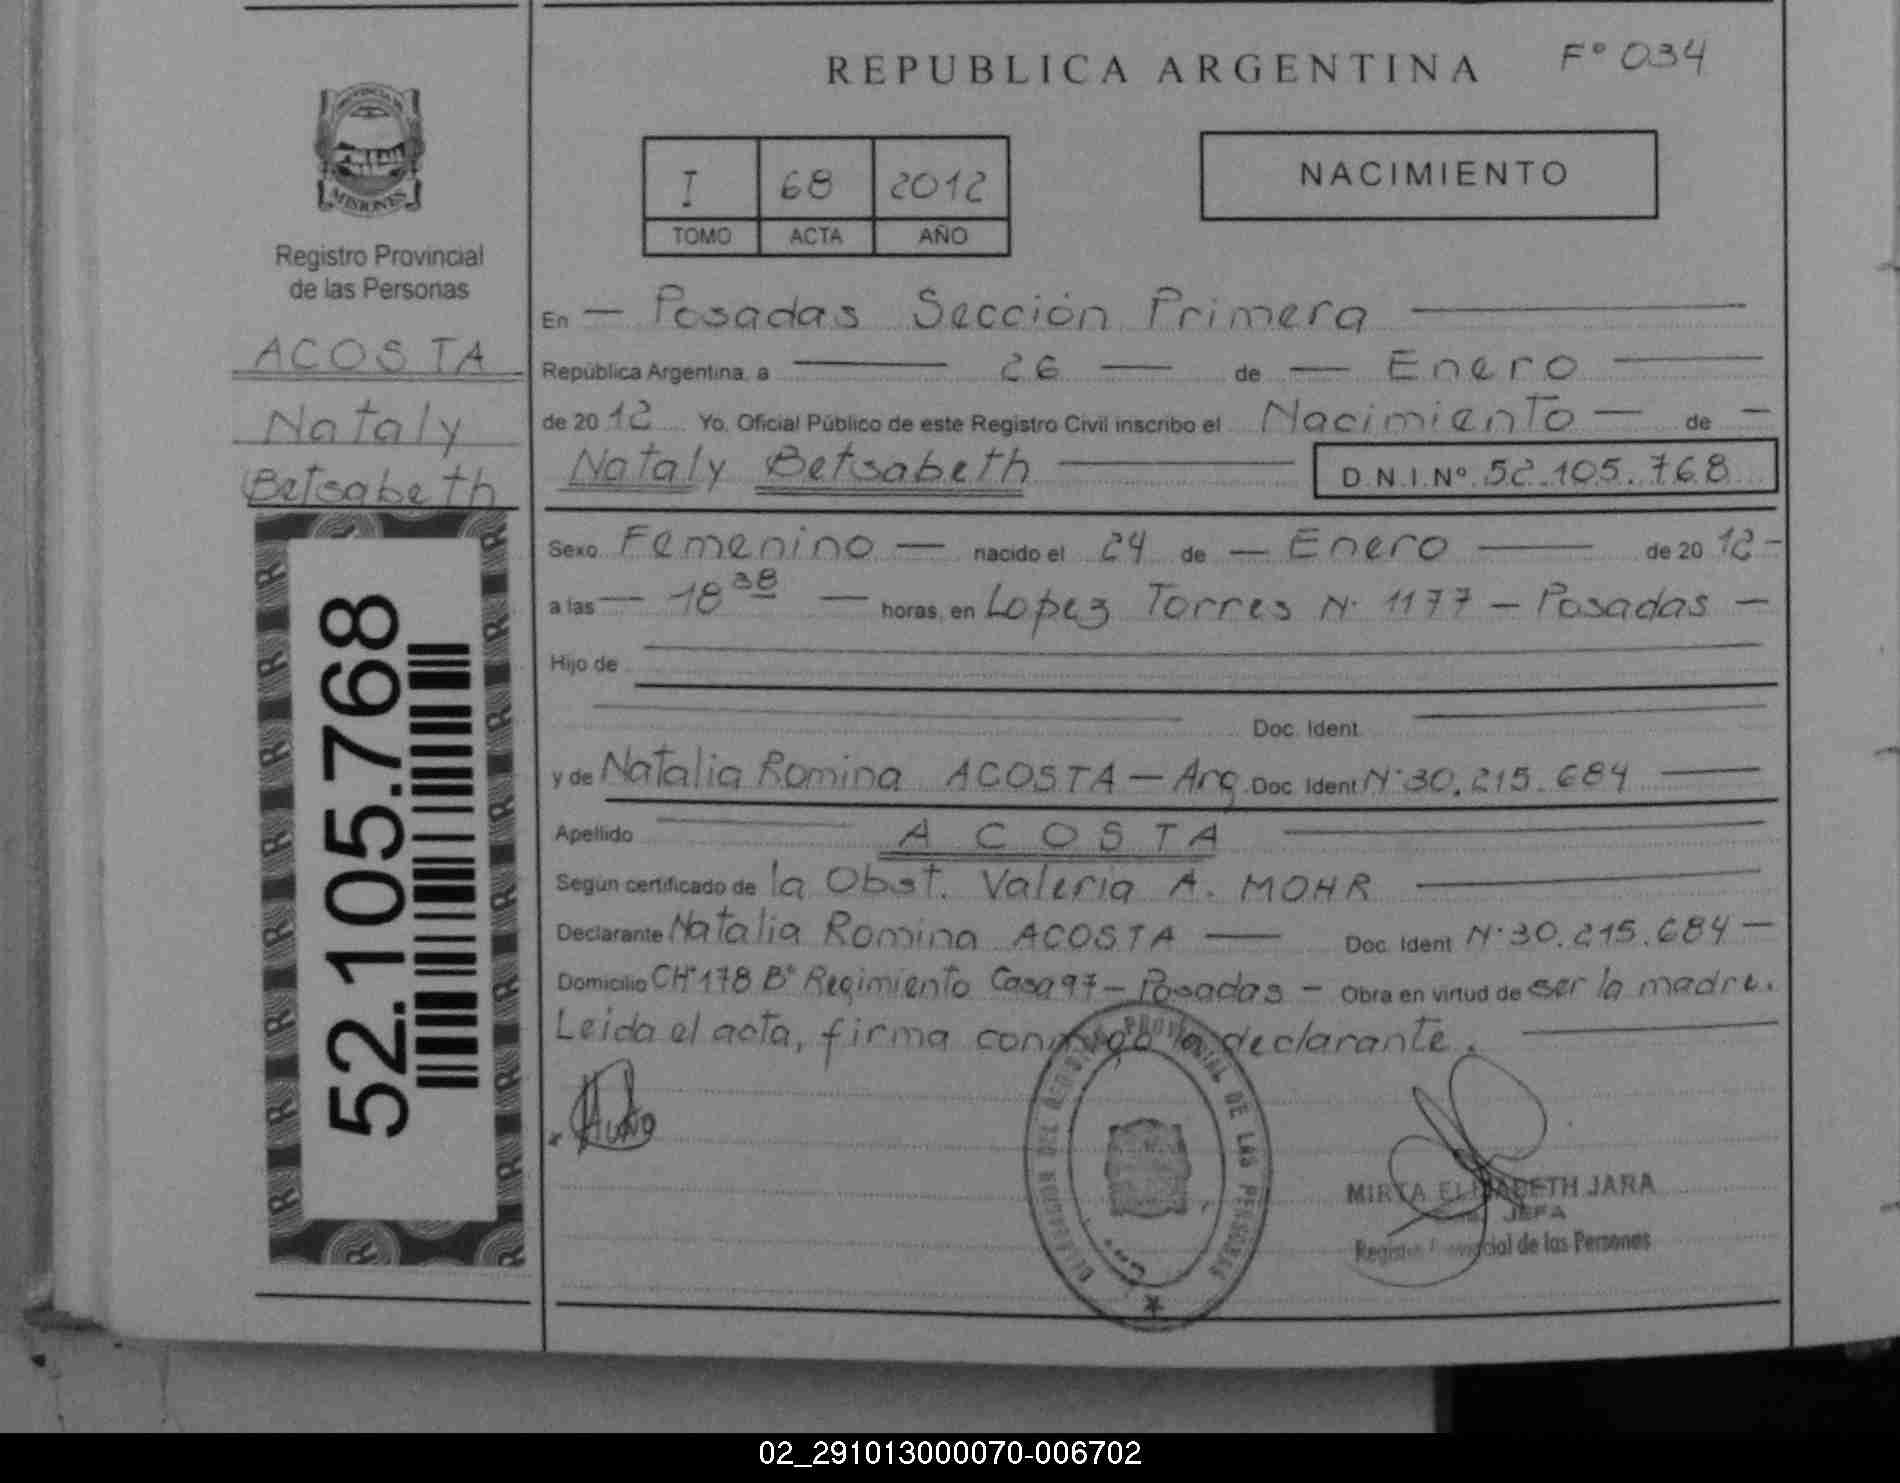 REPUBLICA ARGENTINA Fº 034
PROVINCIA DE
MISIONES
Registro Provincial
de las Personas
ACOSTA
Nataly
Betsabeth
52.105.768
I 68 2012
TOMO ACTA AÑO
NACIMIENTO
En — Posadas Sección Primera —
República Argentina, a — 26 — de — Enero —
de 2012 Yo, Oficial Público de este Registro Civil inscribo el Nacimiento — de —
Nataly Betsabeth — D.N.I.Nº 52.105.768
Sexo Femenino — nacido el 24 de — Enero — de 2012 -
a las — 18 38 — horas, en Lopez Torres N· 1177 - Posadas -
Hijo de
Doc. Ident.
y de Natalia Romina ACOSTA - Arg. Doc. Ident N·30.215.684 —
Apellido — ACOSTA —
Según certificado de la Obst. Valeria A. MOHR —
Declarante Natalia Romina ACOSTA — Doc. Ident N·30.215.684 —
Domicilio CHº178 Bº Regimiento Casa 97 - Posadas - Obra en virtud de ser la madre.
Leida el acta, firma conmigo la declarante. —
REGISTRO PROVINCIAL DE LAS PERSONAS
MIRTA ELISABETH JARA
JEFA
Registro Provincial de las Personas
02_291013000070-006702